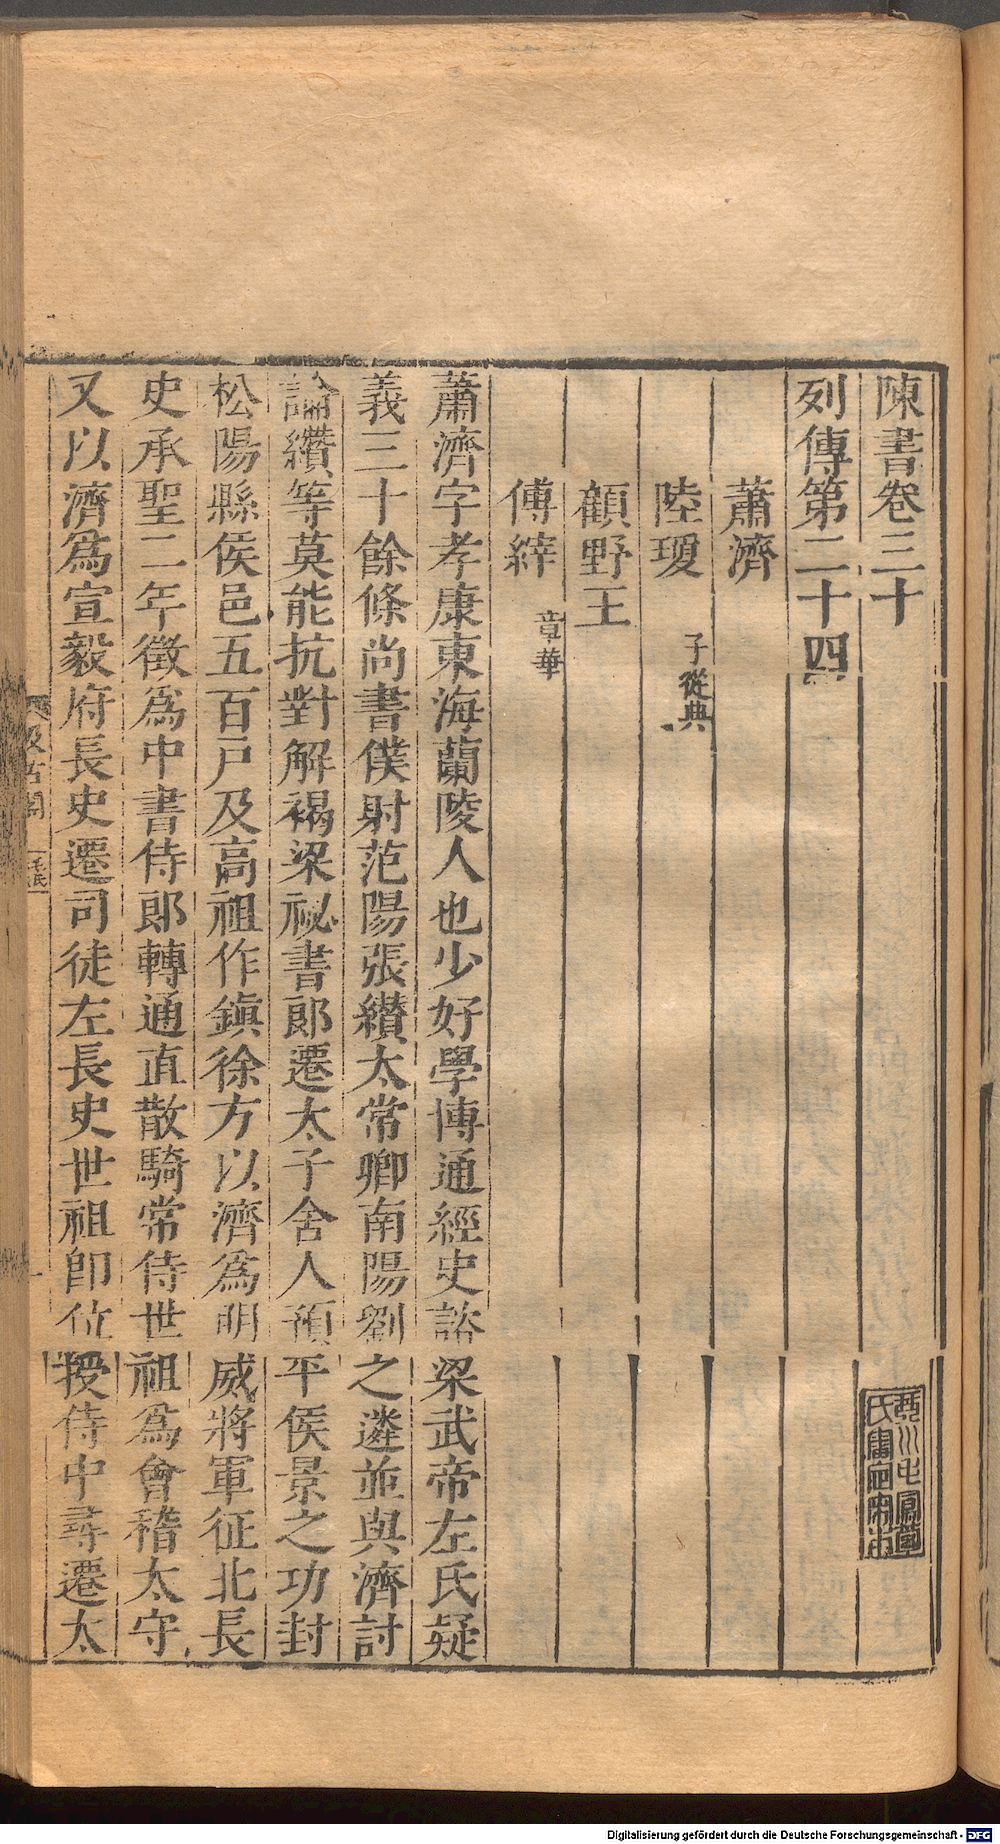 陳書卷三十
列傳第二十四
蕭濟
陸瓊 子從典
顧野王
傅縡 章華
蕭濟字孝康東海蘭陵人也少好學博通經史諮梁武帝左氏疑
義三十餘條尚書僕射范陽張纘太常卿南陽劉之遴並與濟討
論纘等莫能抗對解褐梁祕書郎遷太子舍人預平侯景之功封
松陽縣侯邑五百戶及高祖作鎮徐方以濟爲明威將軍征北長
史承聖二年徵爲中書侍郎轉通直散騎常侍世祖爲會稽太守
又以濟爲宣毅府長史遷司徒左長史世祖卽位授侍中尋遷太
汲古閣
毛氏
一
Digitalisierung gefördert durch die Deutsche Forschungsgemeinschaft - DFG